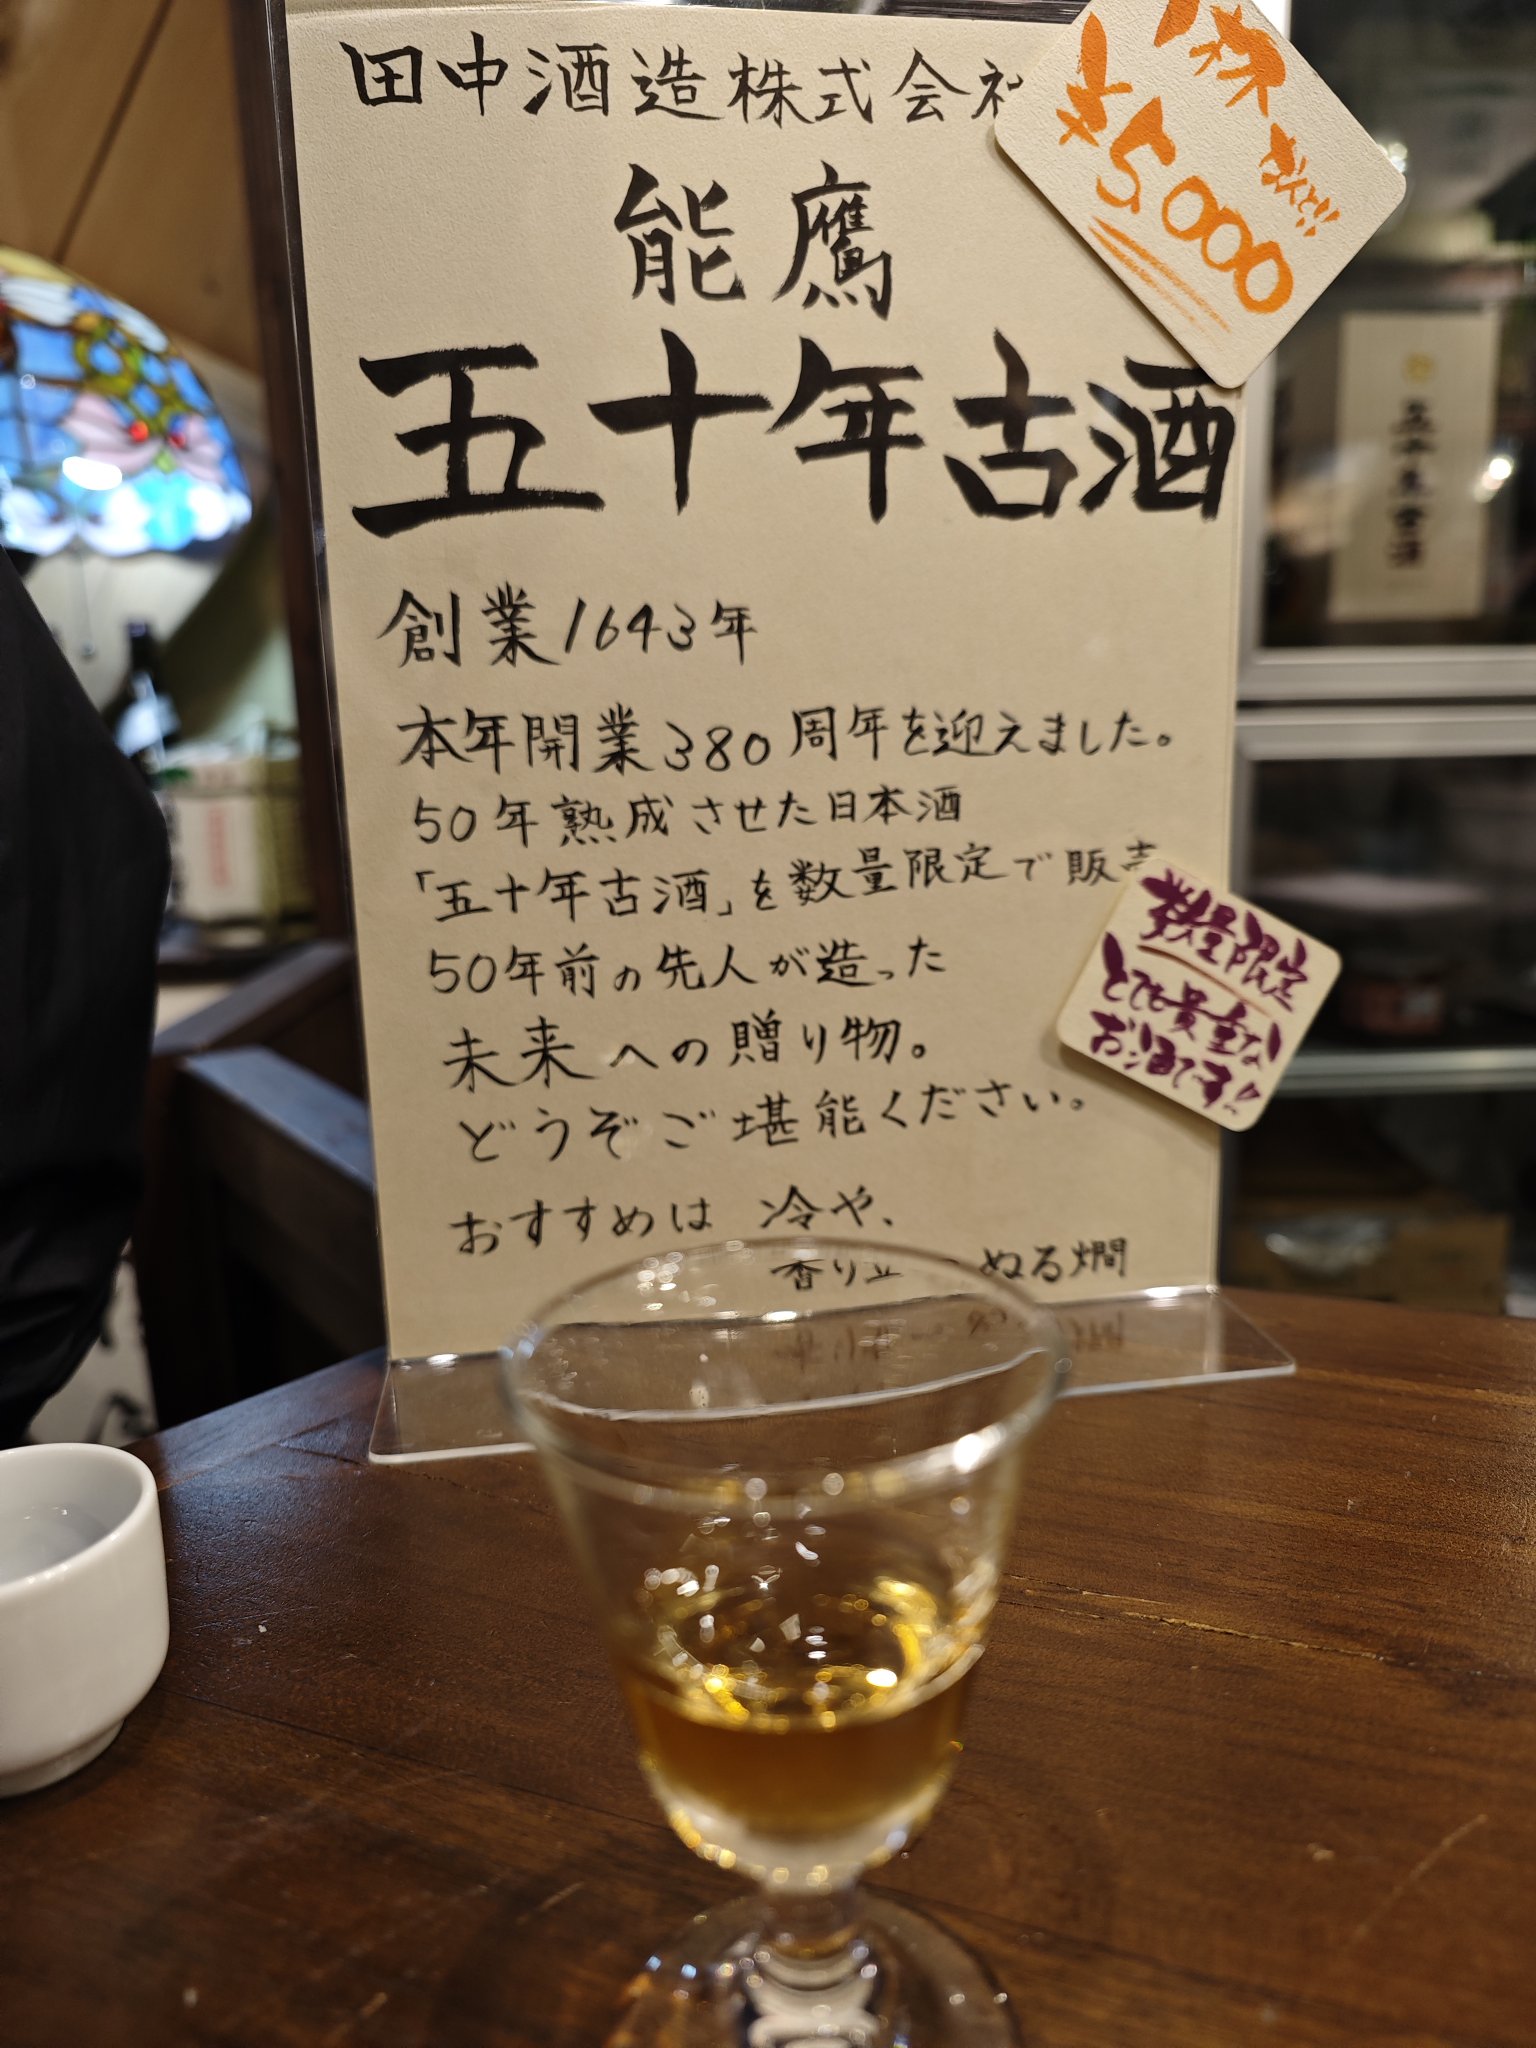 田中酒造株式会社
なんと!!
¥5,000
能鷹
五十年古酒
創業1643年
本年開業380周年を迎えました。
50年熟成させた日本酒
「五十年古酒」を数量限定で販売
50年前の先人が造った
未来への贈り物。
どうぞご堪能ください。
おすすめは 冷や、
香り立 ぬる燗
数量限定
とても貴重な
お酒です!!